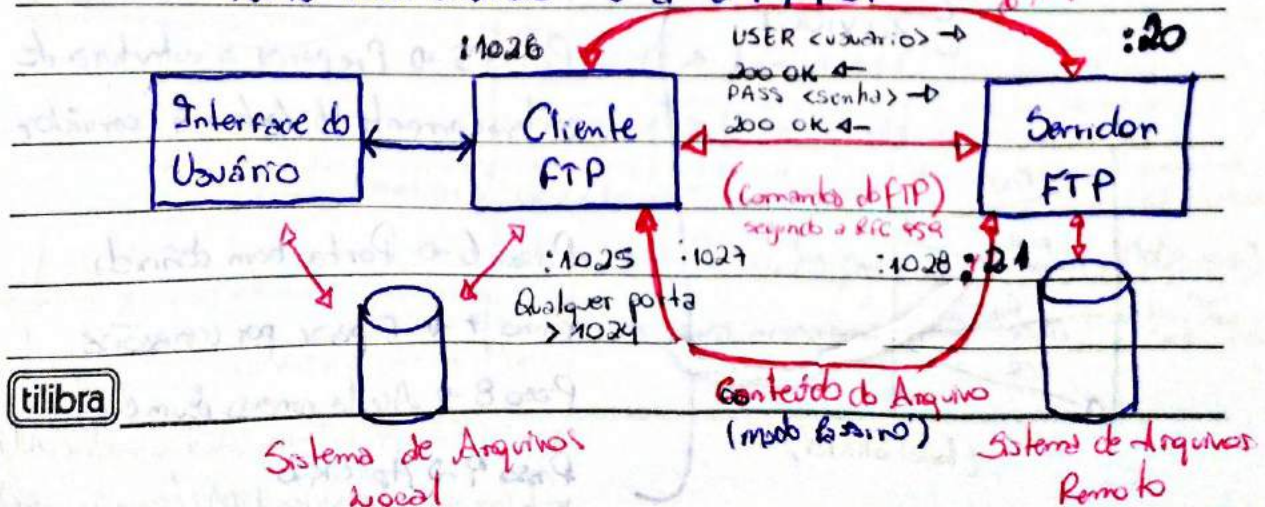 :1026
USER <usuário> →
:20
200 OK ←
PASS <senha> →
200 OK ←
Interface do
Usuário
Cliente
FTP
Servidor
FTP
(Comandos do FTP)
segundo a RFC 959
:1025
:1027
:1028
:21
Qualquer porta
> 1024
tilibra
Conteúdo do Arquivo
(modo Passivo)
Sistema de Arquivos
Local
Sistema de Arquivos
Remoto